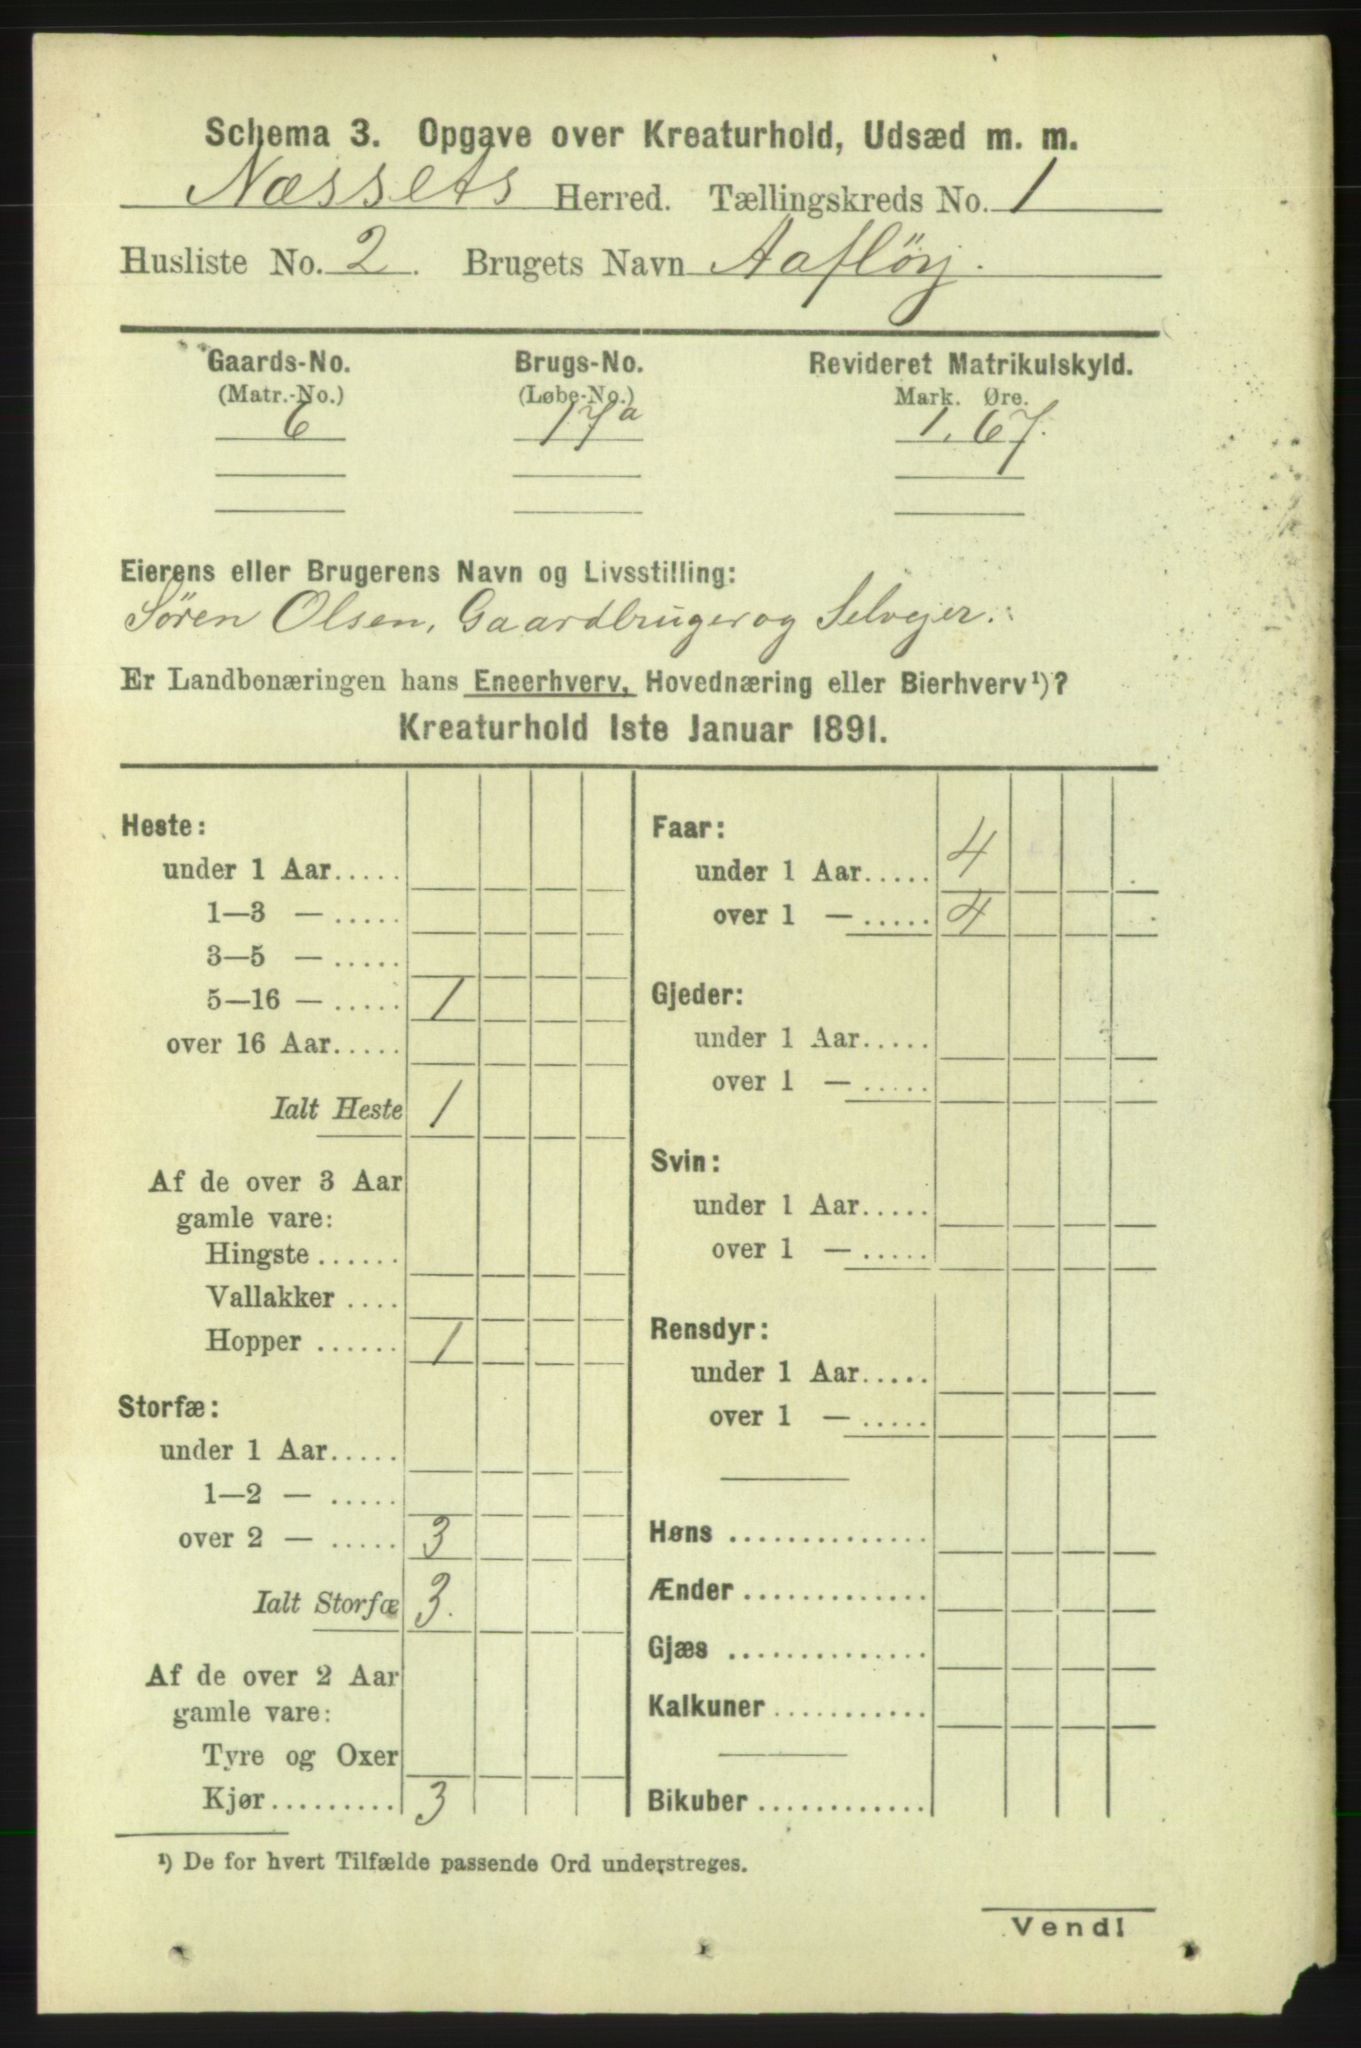 Schema 3. Opgave over Kreaturhold, Udsæd m. m.
Næssets Herred. Tællingskreds No. 1
Husliste No. 2. Brugets Navn Aafløy.
Gaards-No. Brugs-No. Revideret Matrikulskyld.
(Matr.-No.) (Løbe-No.) Mark. Øre.
6 17a 1.67.
Eierens eller Brugerens Navn og Livsstilling:
Søren Olsen, Gaardbruger og Selvejer.
Er Landbonæringen hans Eneerhverv, Hovednæring eller Bierhverv¹)?
Kreaturhold 1ste Januar 1891.
Heste:
under 1 Aar.....
1—3 — .....
3—5 — .....
5—16 — ..... 1
over 16 Aar.....
Ialt Heste 1
Af de over 3 Aar
gamle vare:
Hingste ......
Vallakker ....
Hopper ...... 1
Storfæ:
under 1 Aar.....
1—2 — .....
over 2 — ..... 3
Ialt Storfæ 3.
Af de over 2 Aar
gamle vare:
Tyre og Oxer
Kjør......... 3
Faar:
under 1 Aar..... 4
over 1 — ..... 4
Gjeder:
under 1 Aar.....
over 1 — .....
Svin:
under 1 Aar.....
over 1 — .....
Rensdyr:
under 1 Aar.....
over 1 — .....
Høns ..............
Ænder .............
Gjæs ..............
Kalkuner ...........
Bikuber ............
¹) De for hvert Tilfælde passende Ord understreges.
Vend!